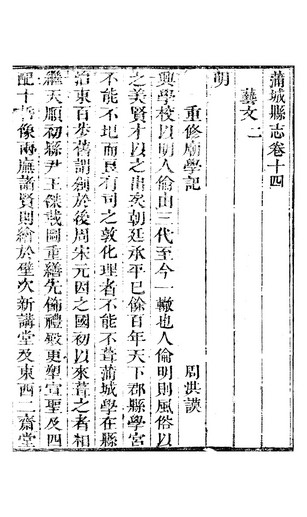 蒲城縣志卷十四
藝文二
明
重修廟學記　周洪謨
興學校以明人倫由三代至今一轍也人倫明則風俗以
之美賢才以之出矣朝廷承平已餘百年天下郡縣學宮
不能不圯而良有司之敦化理者不能不葺蒲城學在縣
治東百步舊謂創於後周宋元因之國初以來葺之者相
繼天順初縣尹王傑載圖重繕先飾禮殿更塑宣聖及四
配十哲像兩廡諸賢則繪於壁次新講堂及東西二齋堂